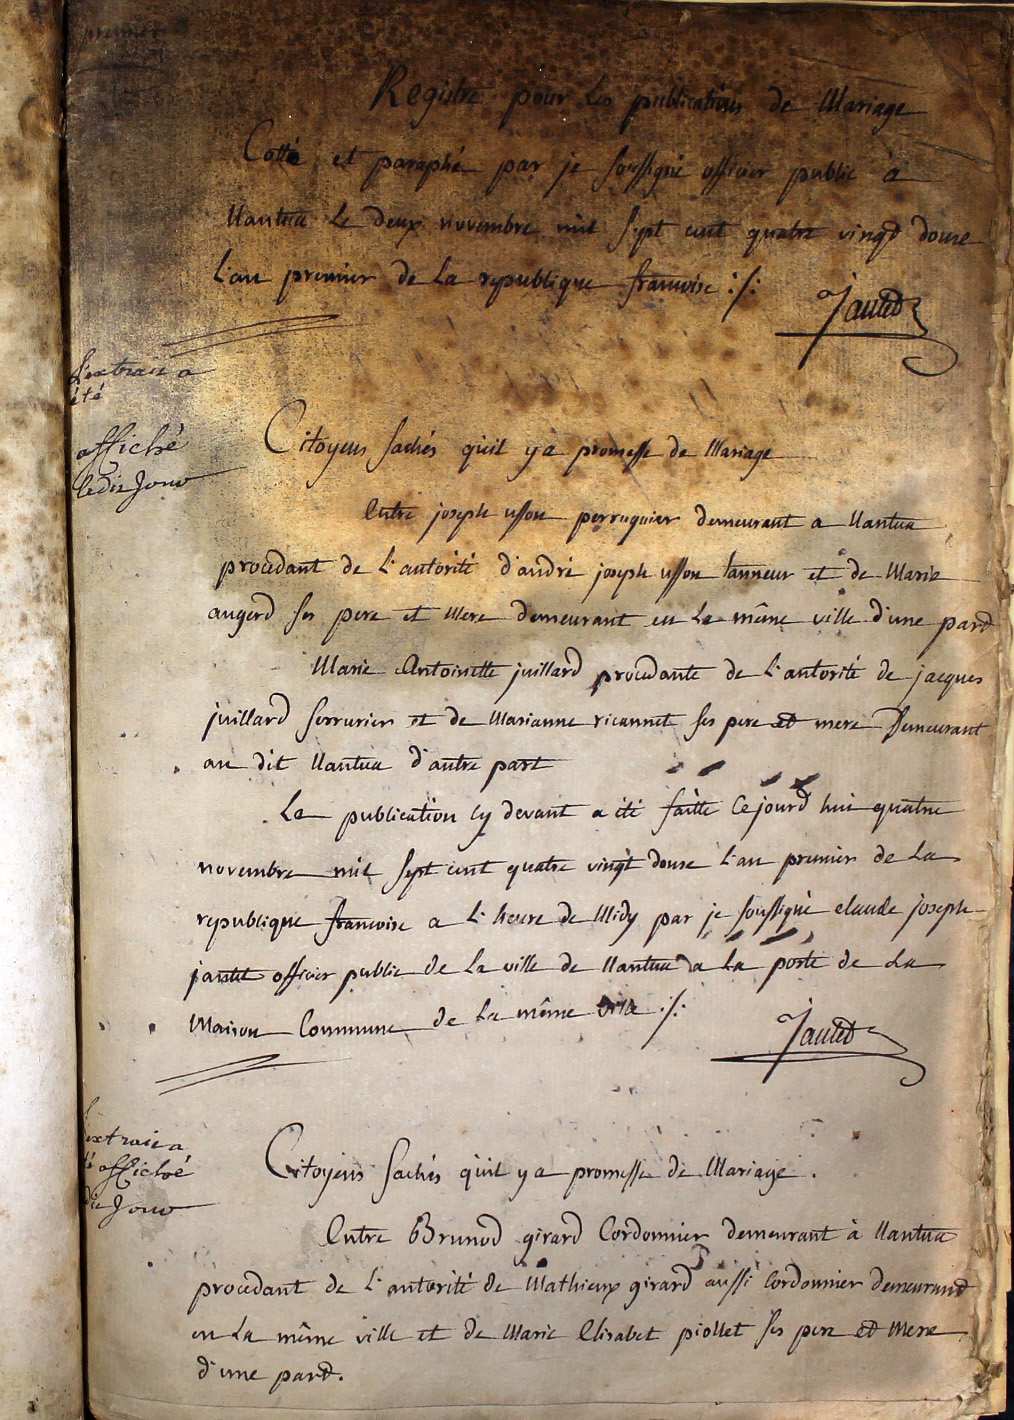 premier
Registre pour les publications de Mariage
Cotté et paraphé par je soussigné officier public a
Nantua Le deux novembre mil sept cent quatre vingt douse
L'an premier de La republique francoise :/:
Jantet
L'extrait a
été
affiché
ledit Jour
Citoyens sachés qu'il y a promesse de Mariage
Entre joseph usson perruquier demeurant a Nantua
procedant de L'autorité d'andré joseph usson tanneur et de Marie
angerd ses pere et Mere demeurant en La même ville d'une pard
Marie Antoinette juillard procedante de L'autorité de jacques
juillard serrurier et de Marianne ricannet ses pere et mere Demeurant
au dit Nantua d'autre part
La publication cy devant a été faitte Cejourd hui quatre
novembre mil sept cent quatre vingt douse L'an premier de La
republique francoise a L'heure de Midy par je soussigné claude joseph
jantet officier public de La ville de Nantua a La porte de La
Maison Commune de La même ville :/:
Jantet
L'extrait a
été affiché
dit Jour
Citoyens sachés qu'il y a promesse de Mariage .
Entre Brunod girard Cordonnier demeurant à Nantua
procedant de L'autorité de Mathieux girard aussi Cordonnier demeurand
en La même ville et de Marie Elisabet piollet ses pere et Mere
d'une pard.